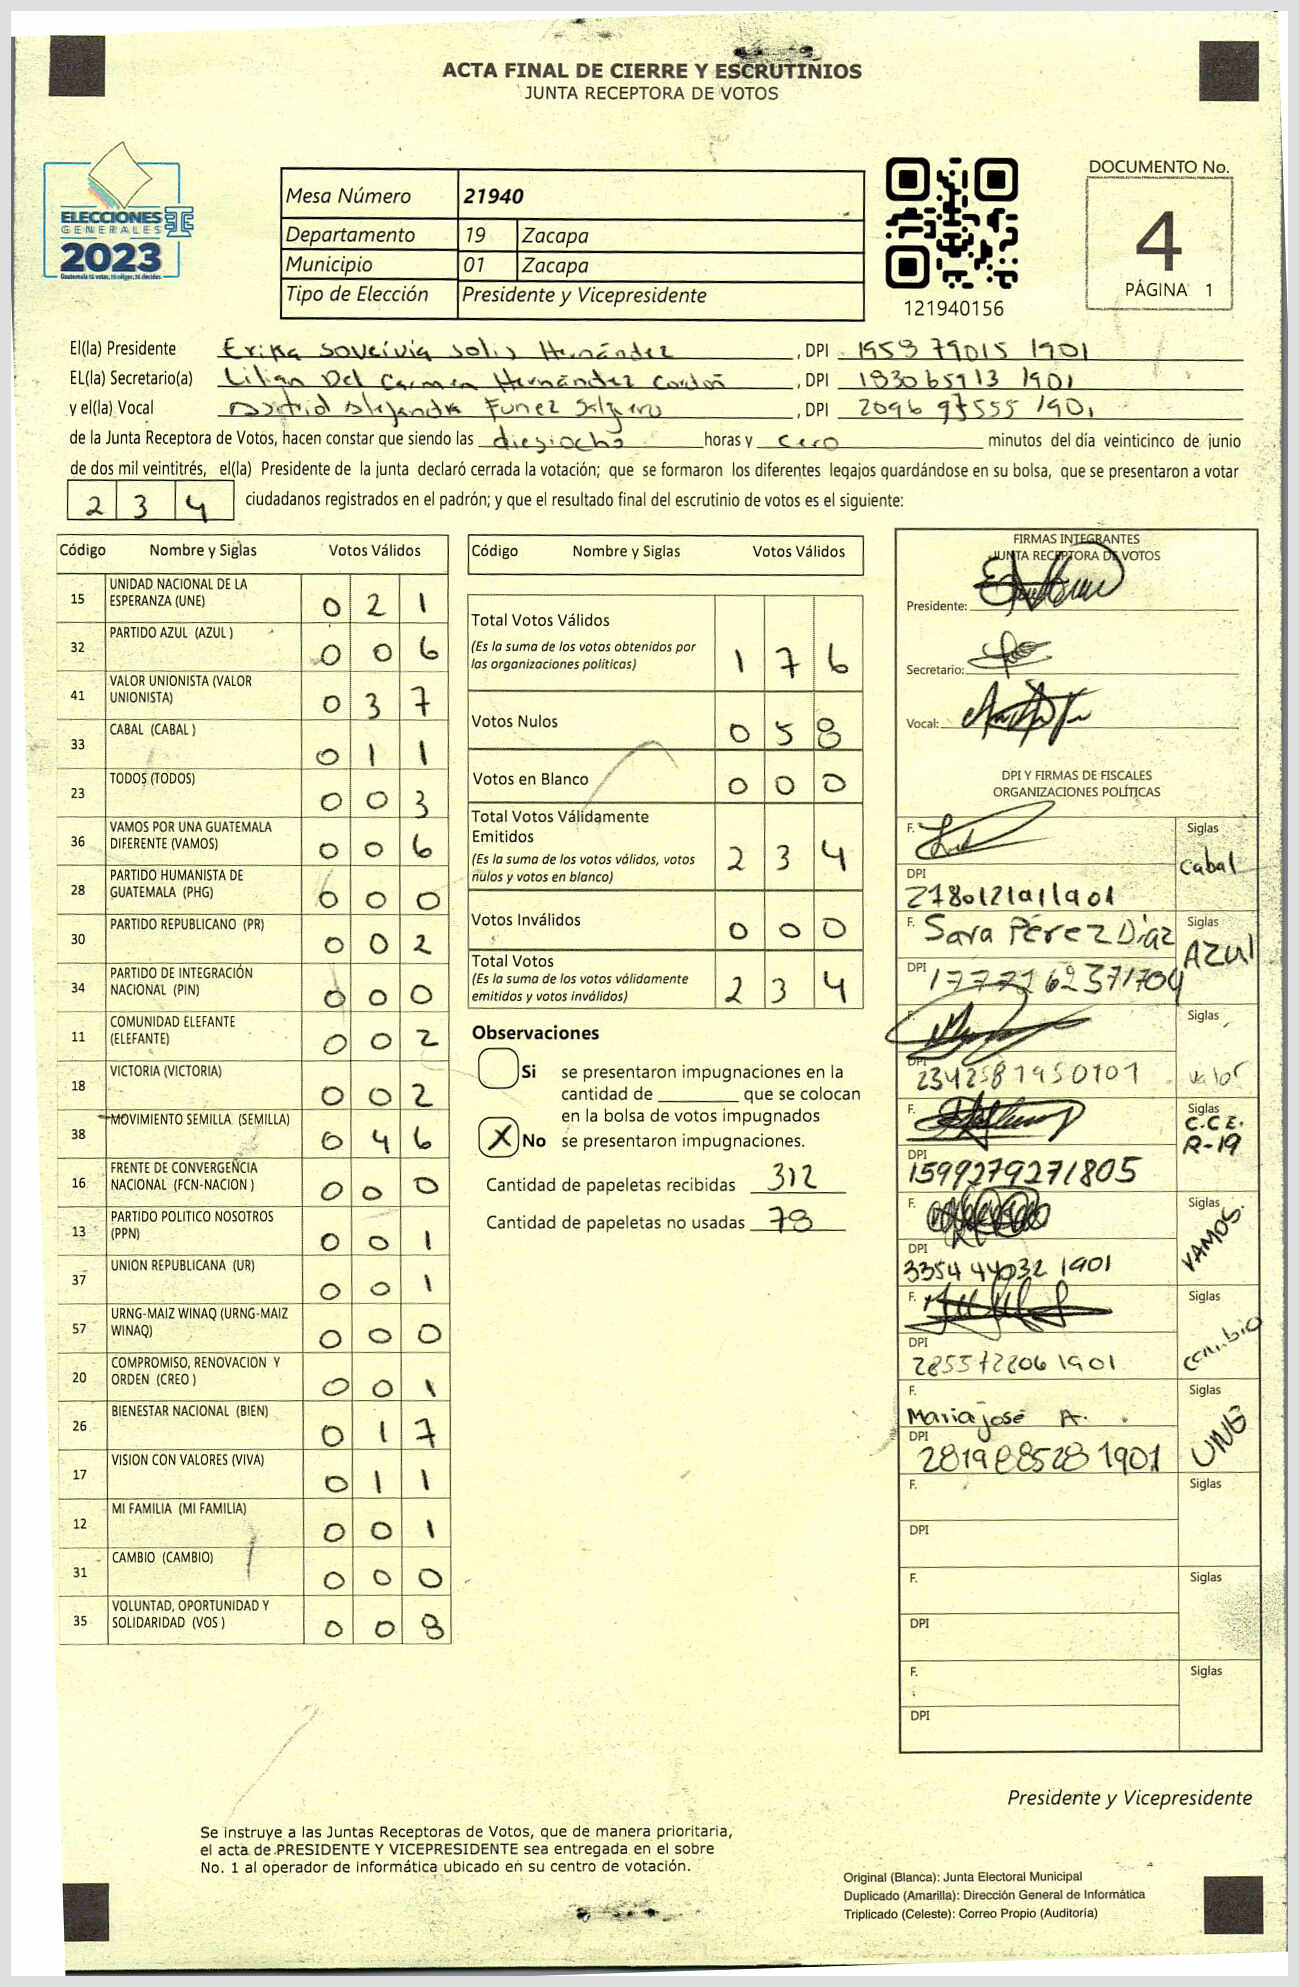 ACTA FINAL DE CIERRE Y ESCRUTINIOS
JUNTA RECEPTORA DE VOTOS
ELECCIONES
GENERALES
2023
Mesa Número 21940
Departamento 19 Zacapa
Municipio 01 Zacapa
Tipo de Elección Presidente y Vicepresidente
121940156
DOCUMENTO No.
4
PÁGINA 1
El(la) Presidente Erika Solis Hernández, DPI 1953 79015 1901
EL(la) Secretario(a) Lilian Del Carmen Hernández Cordón, DPI 1930 65913 1901
y el(la) Vocal Astrid Alejandra Funez Salguero, DPI 2096 97555 1901
de la Junta Receptora de Votos, hacen constar que siendo las diesiocho horas y cero minutos del día veinticinco de junio
de dos mil veintitrés, el(la) Presidente de la junta declaró cerrada la votación; que se formaron los diferentes legajos guardándose en su bolsa, que se presentaron a votar
234 ciudadanos registrados en el padrón; y que el resultado final del escrutinio de votos es el siguiente:
Código Nombre y Siglas Votos Válidos
15 UNIDAD NACIONAL DE LA ESPERANZA (UNE) 0 2 1
32 PARTIDO AZUL (AZUL ) 0 0 6
41 VALOR UNIONISTA (VALOR UNIONISTA) 0 3 7
33 CABAL (CABAL ) 0 1 1
23 TODOS (TODOS) 0 0 3
36 VAMOS POR UNA GUATEMALA DIFERENTE (VAMOS) 0 0 6
28 PARTIDO HUMANISTA DE GUATEMALA (PHG) 0 0 0
30 PARTIDO REPUBLICANO (PR) 0 0 2
34 PARTIDO DE INTEGRACIÓN NACIONAL (PIN) 0 0 0
11 COMUNIDAD ELEFANTE (ELEFANTE) 0 0 2
18 VICTORIA (VICTORIA) 0 0 2
38 MOVIMIENTO SEMILLA (SEMILLA) 0 4 6
16 FRENTE DE CONVERGENCIA NACIONAL (FCN-NACION ) 0 0 0
13 PARTIDO POLITICO NOSOTROS (PPN) 0 0 1
37 UNION REPUBLICANA (UR) 0 0 1
57 URNG-MAIZ WINAQ (URNG-MAIZ WINAQ) 0 0 0
20 COMPROMISO, RENOVACION Y ORDEN (CREO ) 0 0 1
26 BIENESTAR NACIONAL (BIEN) 0 1 7
17 VISION CON VALORES (VIVA) 0 1 1
12 MI FAMILIA (MI FAMILIA) 0 0 1
31 CAMBIO (CAMBIO) 0 0 0
35 VOLUNTAD, OPORTUNIDAD Y SOLIDARIDAD (VOS ) 0 0 8
Código Nombre y Siglas Votos Válidos
Total Votos Válidos 1 7 6
(Es la suma de los votos obtenidos por
las organizaciones políticas)
Votos Nulos 0 5 8
Votos en Blanco 0 0 0
Total Votos Válidamente
Emitidos 2 3 4
(Es la suma de los votos válidos, votos
nulos y votos en blanco)
Votos Inválidos 0 0 0
Total Votos 2 3 4
(Es la suma de los votos válidamente
emitidos y votos inválidos)
Observaciones
Si se presentaron impugnaciones en la
cantidad de ________ que se colocan
en la bolsa de votos impugnados
X No se presentaron impugnaciones.
Cantidad de papeletas recibidas 312
Cantidad de papeletas no usadas 78
FIRMAS INTEGRANTES
JUNTA RECEPTORA DE VOTOS
Presidente:
Secretario:
Vocal:
DPI Y FIRMAS DE FISCALES
ORGANIZACIONES POLÍTICAS
F. Siglas
Cabal
DPI
F. Sara Pérez Díaz Siglas
AZUl
DPI 1777262371704
F. Siglas
valor
DPI 2342581950101
F. Siglas
C.C.E.
R-19
DPI
1599279271805
F. Siglas
VAMOS.
DPI
3354 44032 1901
F. Siglas
cambio
DPI
285572206 1901
F. Siglas
Maria José A.
UNE
DPI
281988528 1901
F. Siglas
DPI
F. Siglas
DPI
F. Siglas
DPI
Presidente y Vicepresidente
Se instruye a las Juntas Receptoras de Votos, que de manera prioritaria,
el acta de PRESIDENTE Y VICEPRESIDENTE sea entregada en el sobre
No. 1 al operador de informática ubicado en su centro de votación.
Original (Blanca): Junta Electoral Municipal
Duplicado (Amarilla): Dirección General de Informática
Triplicado (Celeste): Correo Propio (Auditoría)